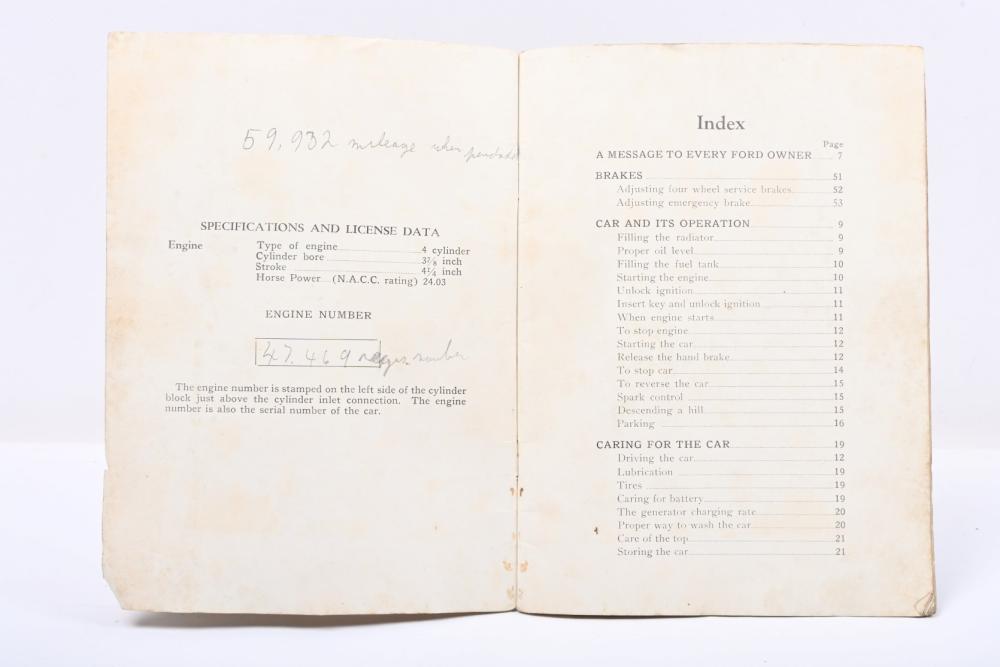 59,932 mileage when
SPECIFICATIONS AND LICENSE DATA
Engine Type of engine 4 cylinder
Cylinder bore 3⅞ inch
Stroke 4¼ inch
Horse Power (N.A.C.C. rating) 24.03
ENGINE NUMBER
47.469 number
The engine number is stamped on the left side of the cylinder
block just above the cylinder inlet connection. The engine
number is also the serial number of the car.
Index
Page
A MESSAGE TO EVERY FORD OWNER 7
BRAKES 51
Adjusting four wheel service brakes 52
Adjusting emergency brake 53
CAR AND ITS OPERATION 9
Filling the radiator 9
Proper oil level 9
Filling the fuel tank 10
Starting the engine 10
Unlock ignition 11
Insert key and unlock ignition 11
When engine starts 11
To stop engine 12
Starting the car 12
Release the hand brake 12
To stop car 14
To reverse the car 15
Spark control 15
Descending a hill 15
Parking 16
CARING FOR THE CAR 19
Driving the car 12
Lubrication 19
Tires 19
Caring for battery 19
The generator charging rate 20
Proper way to wash the car 20
Care of the top 21
Storing the car 21